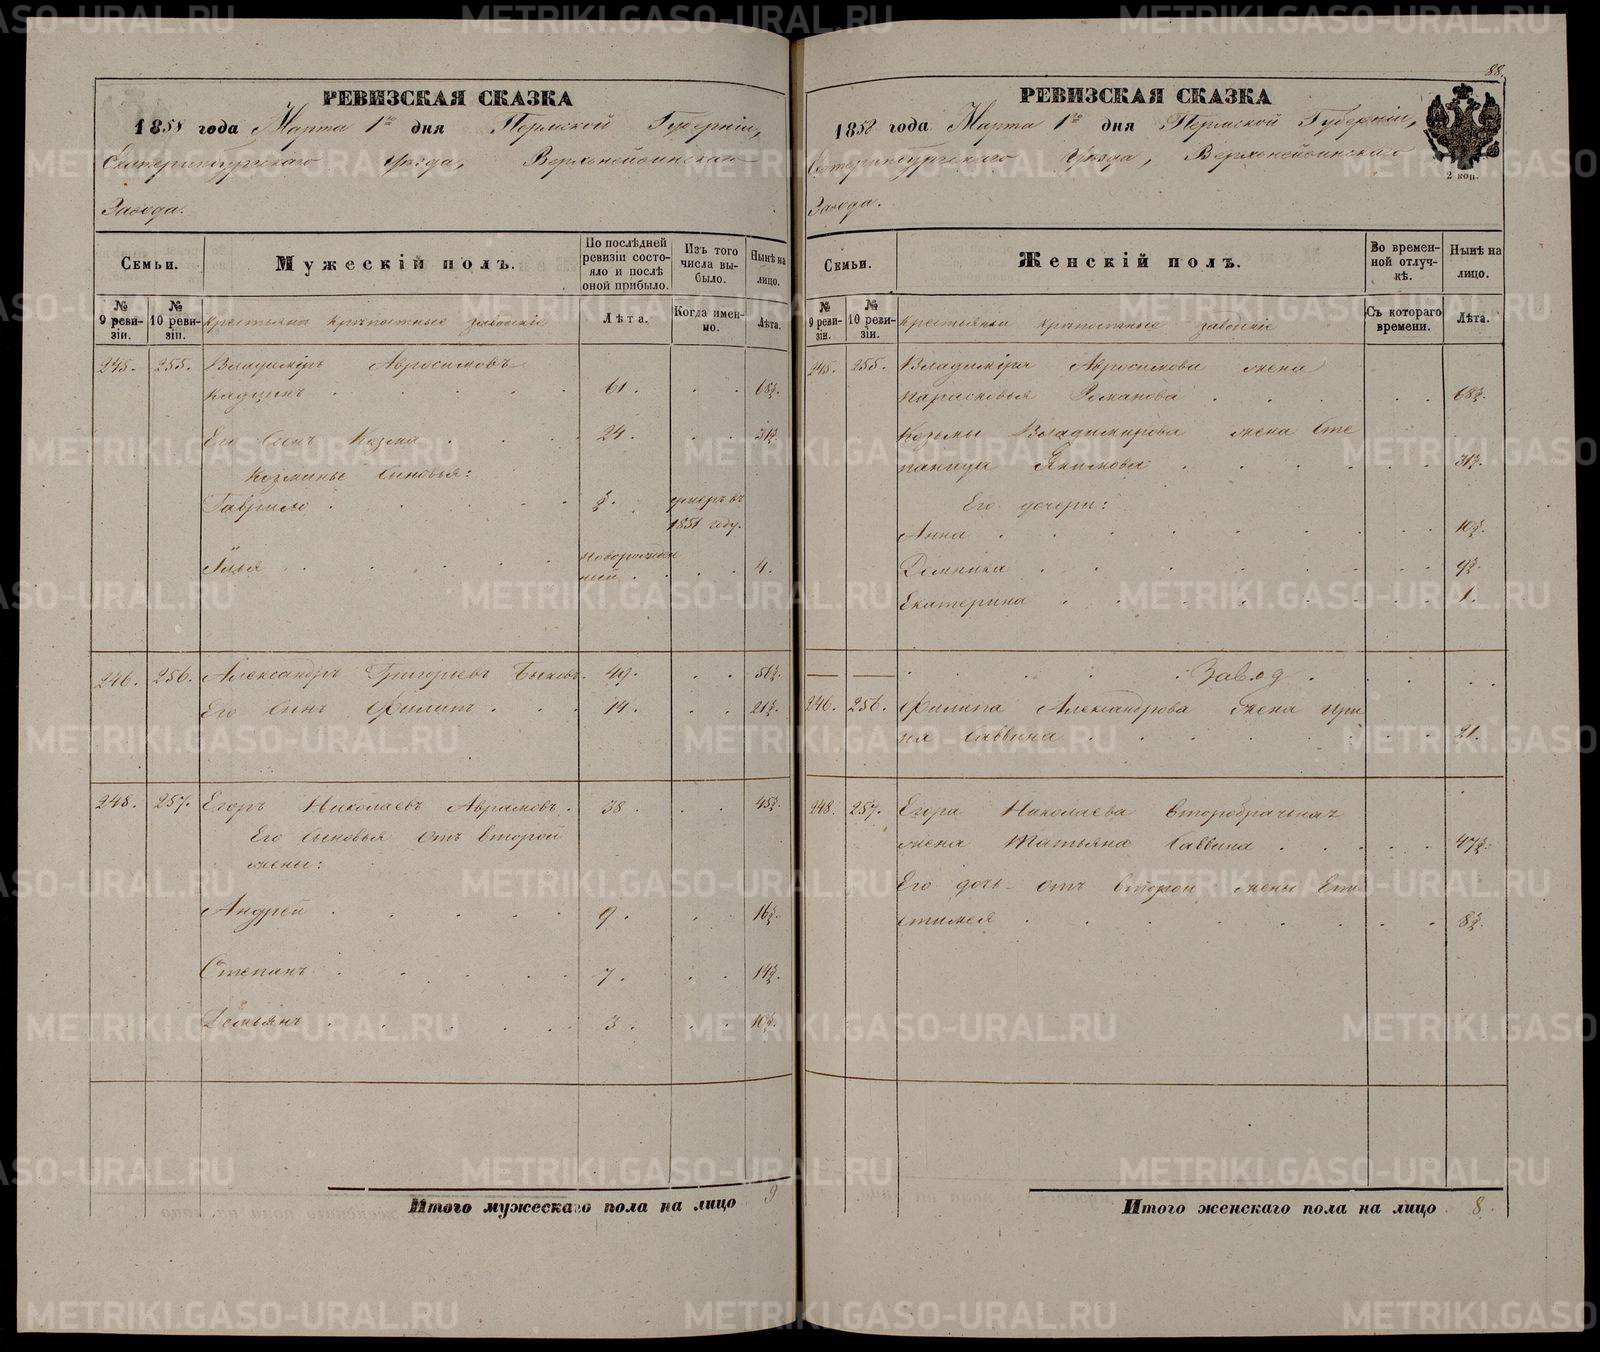 88.
РЕВИЗСКАЯ СКАЗКА
1858 года Марта 1го дня Пермской Губерніи,
Екатеринбургскаго уѣзда, Верхънейвинскаго
Завода.
Семьи.
Мужескій полъ.
По послѣдней ревизіи состояло и послѣ оной прибыло.
Изъ того числа выбыло.
Нынѣ на лицо.
№ 9 ревизіи.
№ 10 ревизіи.
Крестьяна крѣпостные заводскіе
Лѣта.
Когда именно.
Лѣта.
245. 255. Владимиръ Авросимовъ
61. 68½.
Его Сынъ Козма 24. 31½.
Козмины сыновья:
Гаврило ½. умеръ въ
1851 году.
Илья новорожден
ный 4.
246. 256. Александръ Григорьевъ Быковъ. 49. 51½.
Его Сынъ Филипъ 14. 21½.
248. 257. Егоръ Николаевъ Аврамовъ. 38. 45½.
Его Сыновья отъ второй
жены:
Андрей 9. 16½.
Степанъ 7. 14½.
Демьянъ 3. 10½.
Итого мужескаго пола на лицо 9
РЕВИЗСКАЯ СКАЗКА
1858 года Марта 1го дня Пермской Губерніи,
Екатеринбургскаго уѣзда, Верхънейвинскаго
Завода.
2 коп.
Семьи.
Женскій полъ.
Во временной отлучкѣ.
Нынѣ на лицо.
№ 9 ревизіи.
№ 10 ревизіи.
Крестьянки крѣпостные заводскіе
Съ котораго времени.
Лѣта.
245. 255. Владимира Авросимова жена
Парасковья Романова 68½.
Козьмы Владимирова жена Сте
панида Якимова 31½.
Его дочери:
Анна 10½.
9½.
Екатерина 1.
Завод
246. 256. Филипа Александрова жена Ири
на Саввина 21.
248. 257. Егора Николаева второбрачная
жена Татьяна Саввина 47½.
Его дочь отъ второй жены Епи
стимея 8½.
Итого женскаго пола на лицо 8.
METRIKI.GASO-URAL.RU